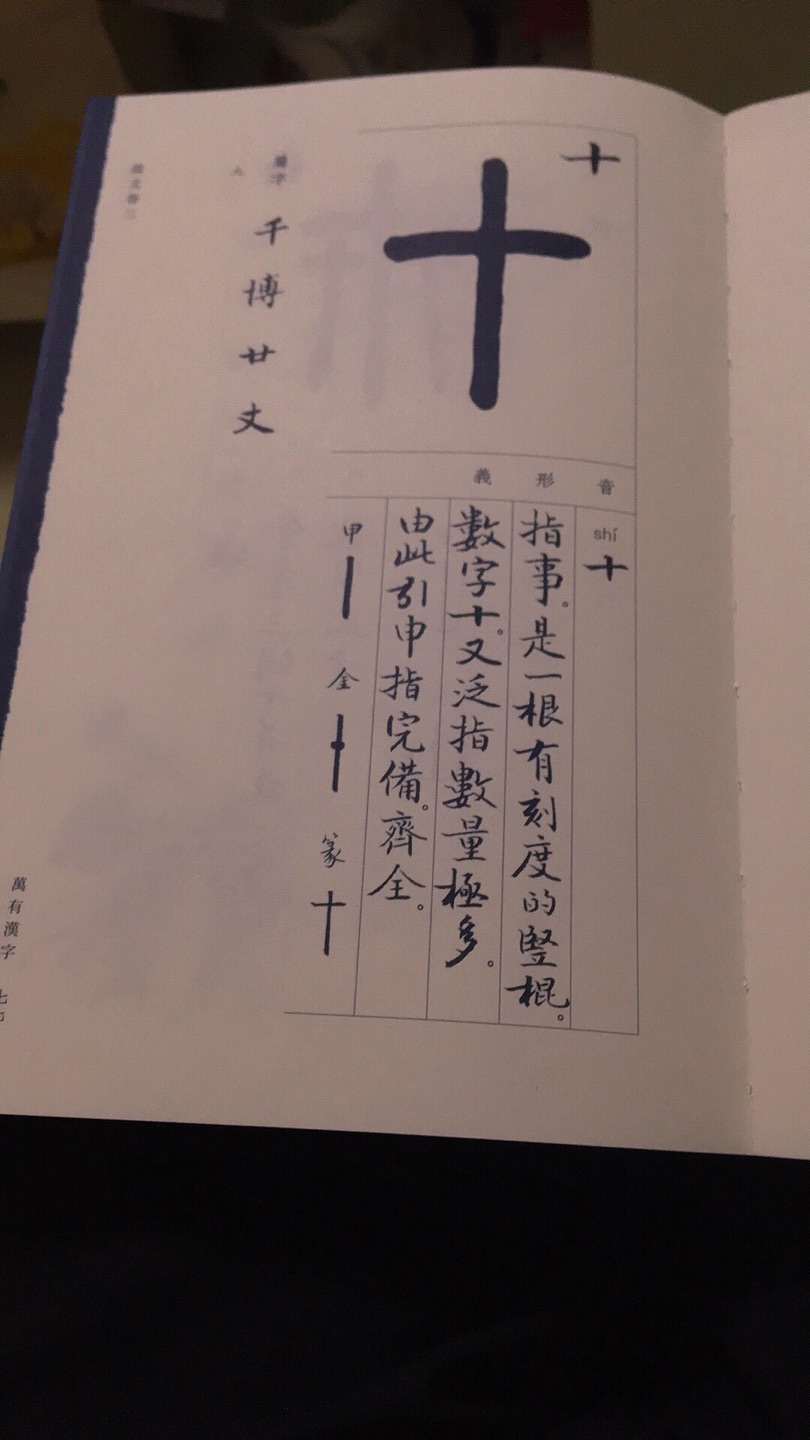 十
十
音
形
義
shí
十
指事。是一根有刻度的豎棍。
數字十。又泛指數量極多。
由此引申指完備。齊全。
甲
金
篆 十
屬字
千 博 廿 丈
說文卷三
萬有漢字